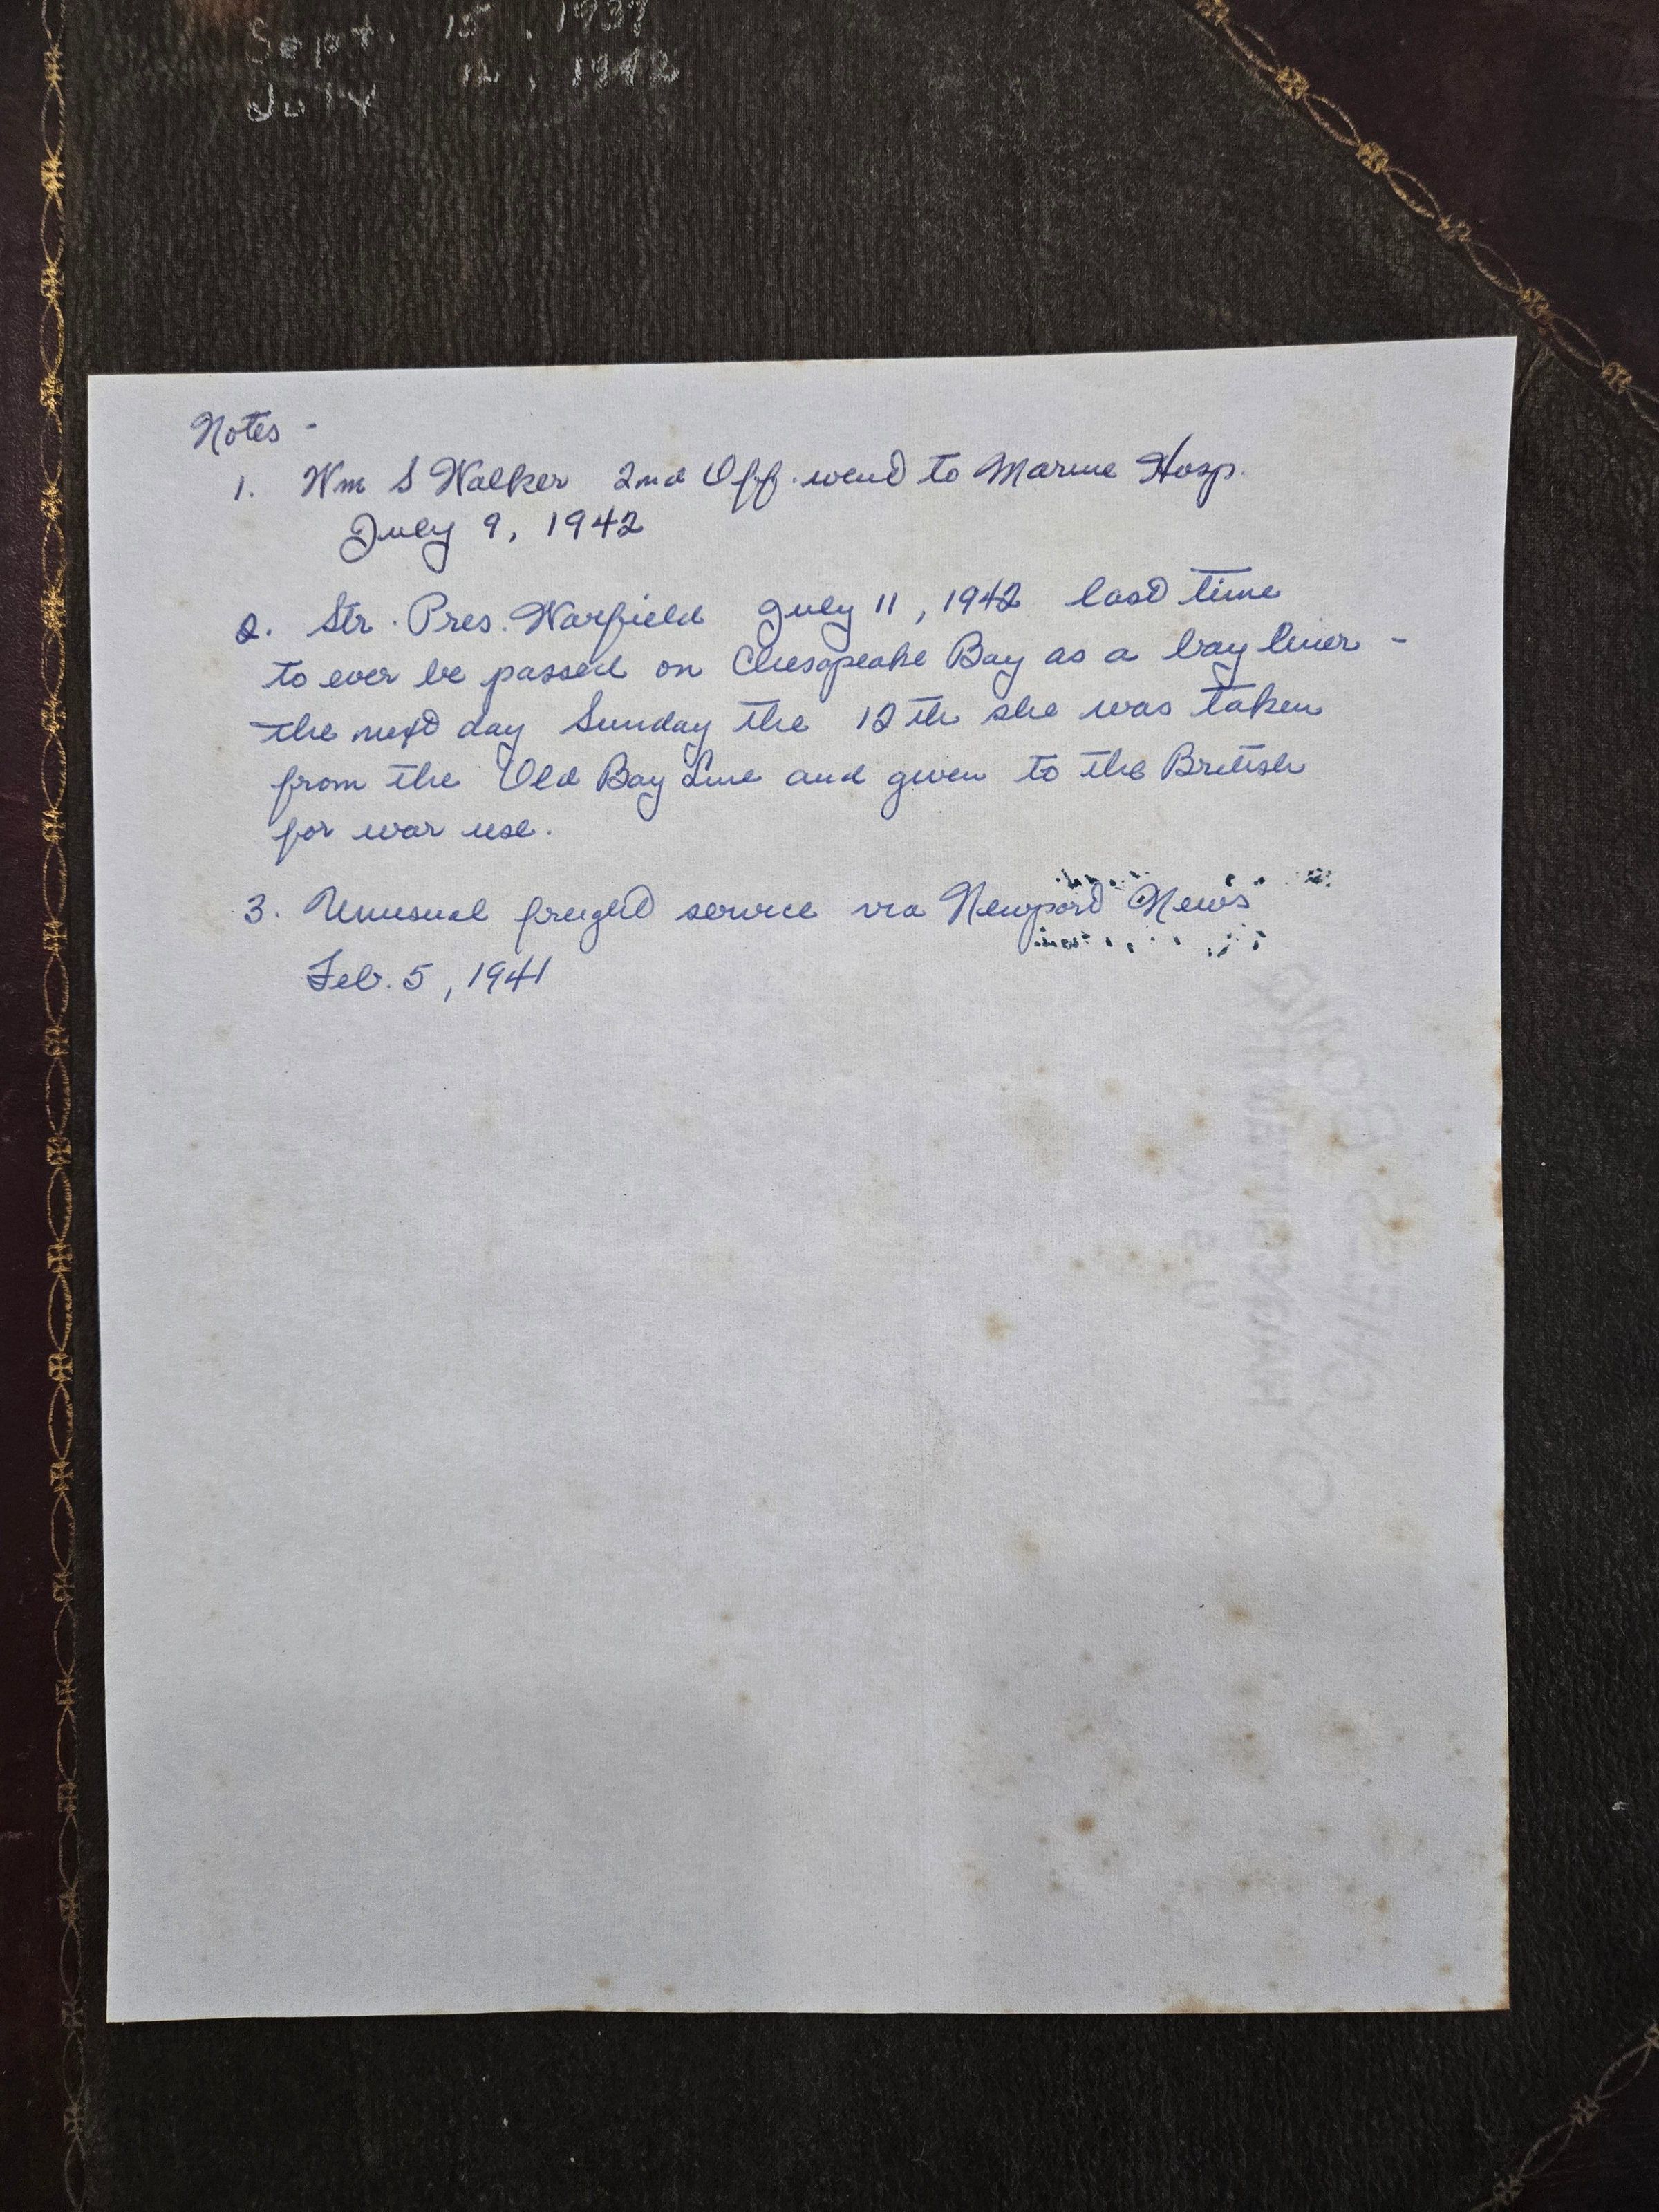 Sept. 15, 1937
July 12, 1942
Notes -
1. Wm S Walker 2nd Off. went to Marine Hosp.
July 9, 1942
2. Str. Pres. Warfield July 11, 1942 last time
to ever be passed on Chesapeake Bay as a bay liner -
the next day Sunday the 12th she was taken
from the Old Bay Line and given to the British
for war use.
3. Unusual freight service via Newport News
Feb. 5, 1941